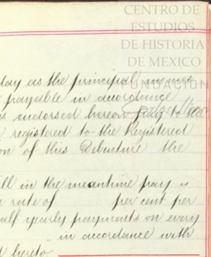 CENTRO DE
ESTUDIOS
DE HISTORIA
DE MEXICO
FUNDACIÓN
day as the principal moneys
payable in accordance
endorsed hereon pay to the
registered to the Registered
on of this Debenture the
ill in the meantime pay
rate of per cent per
alf yearly payments on every
in accordance with
hereto